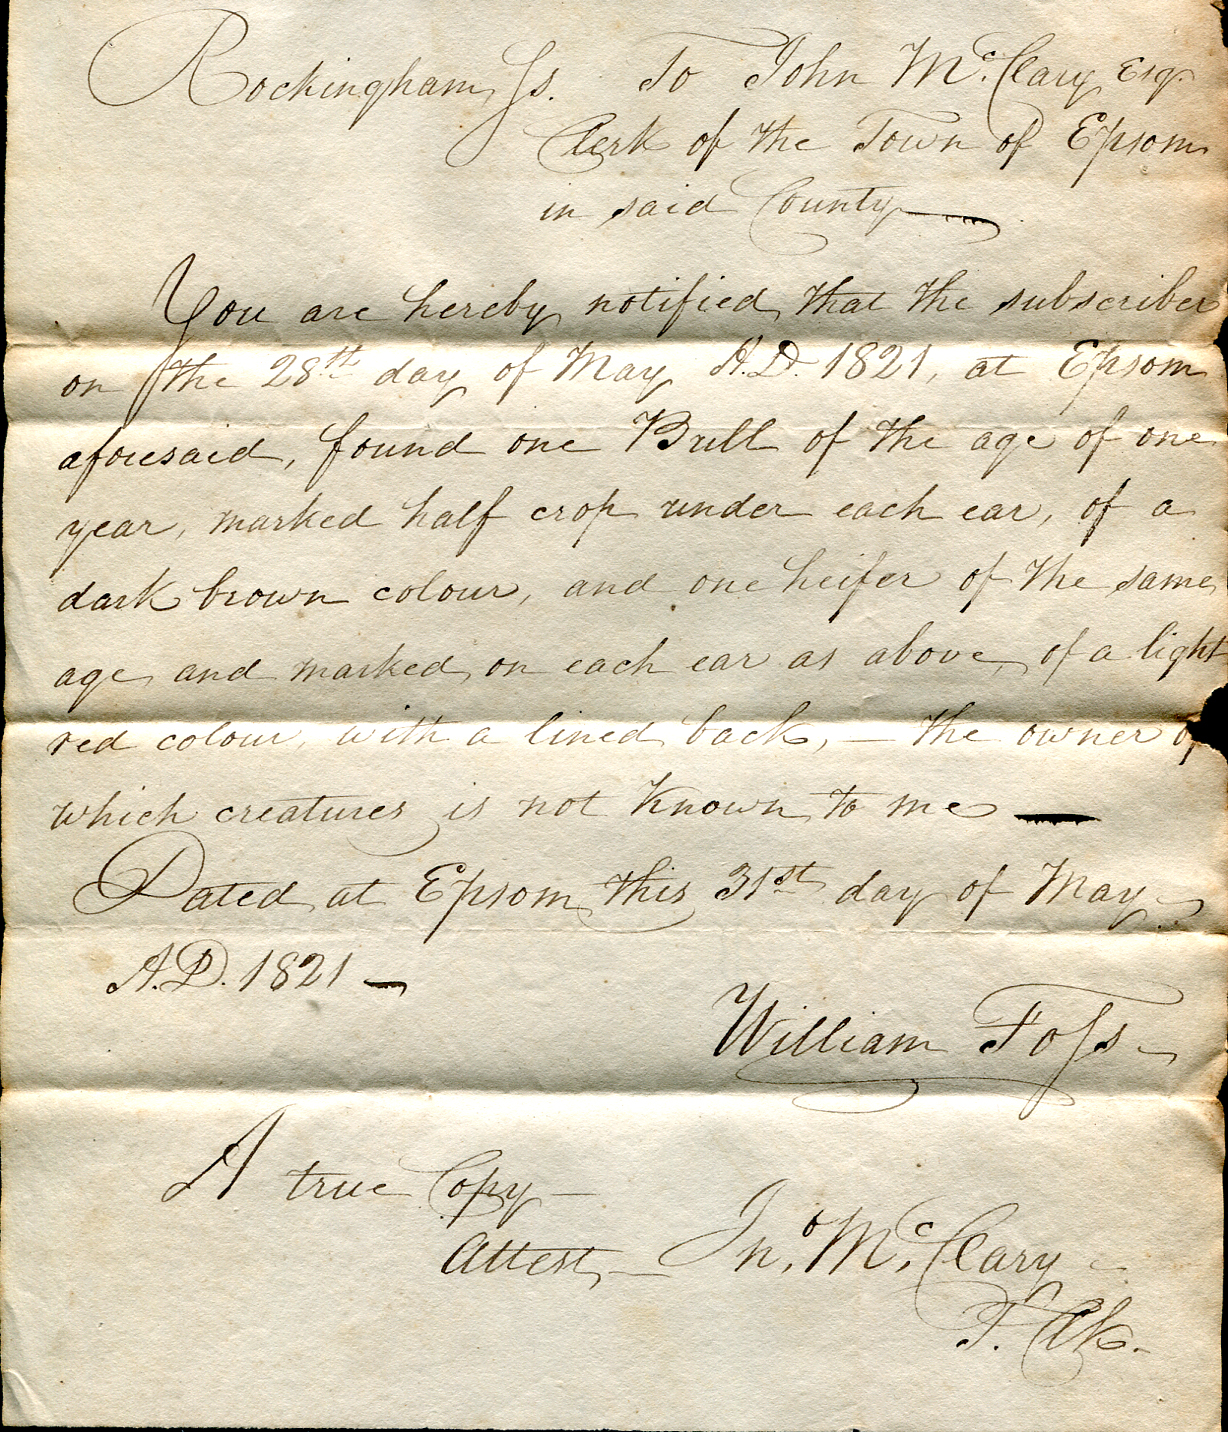 Rockingham, Ss. To John McClary Esqr.
Clerk of the Town of Epsom
in said County
You are hereby notified, that the subscriber
on the 28th day of May A.D. 1821, at Epsom
aforesaid, found one Bull of the age of one
year, marked half crop under each ear, of a
dark brown colour, and one heifer of the same
age and marked on each ear as above, of a light
red colour, with a lined back, — the owner of
which creatures is not known to me —
Dated at Epsom this 31st day of May
A.D. 1821 —
William Foss
A true Copy —
Attest, — Jno. Mc.Clary
T. Clk.